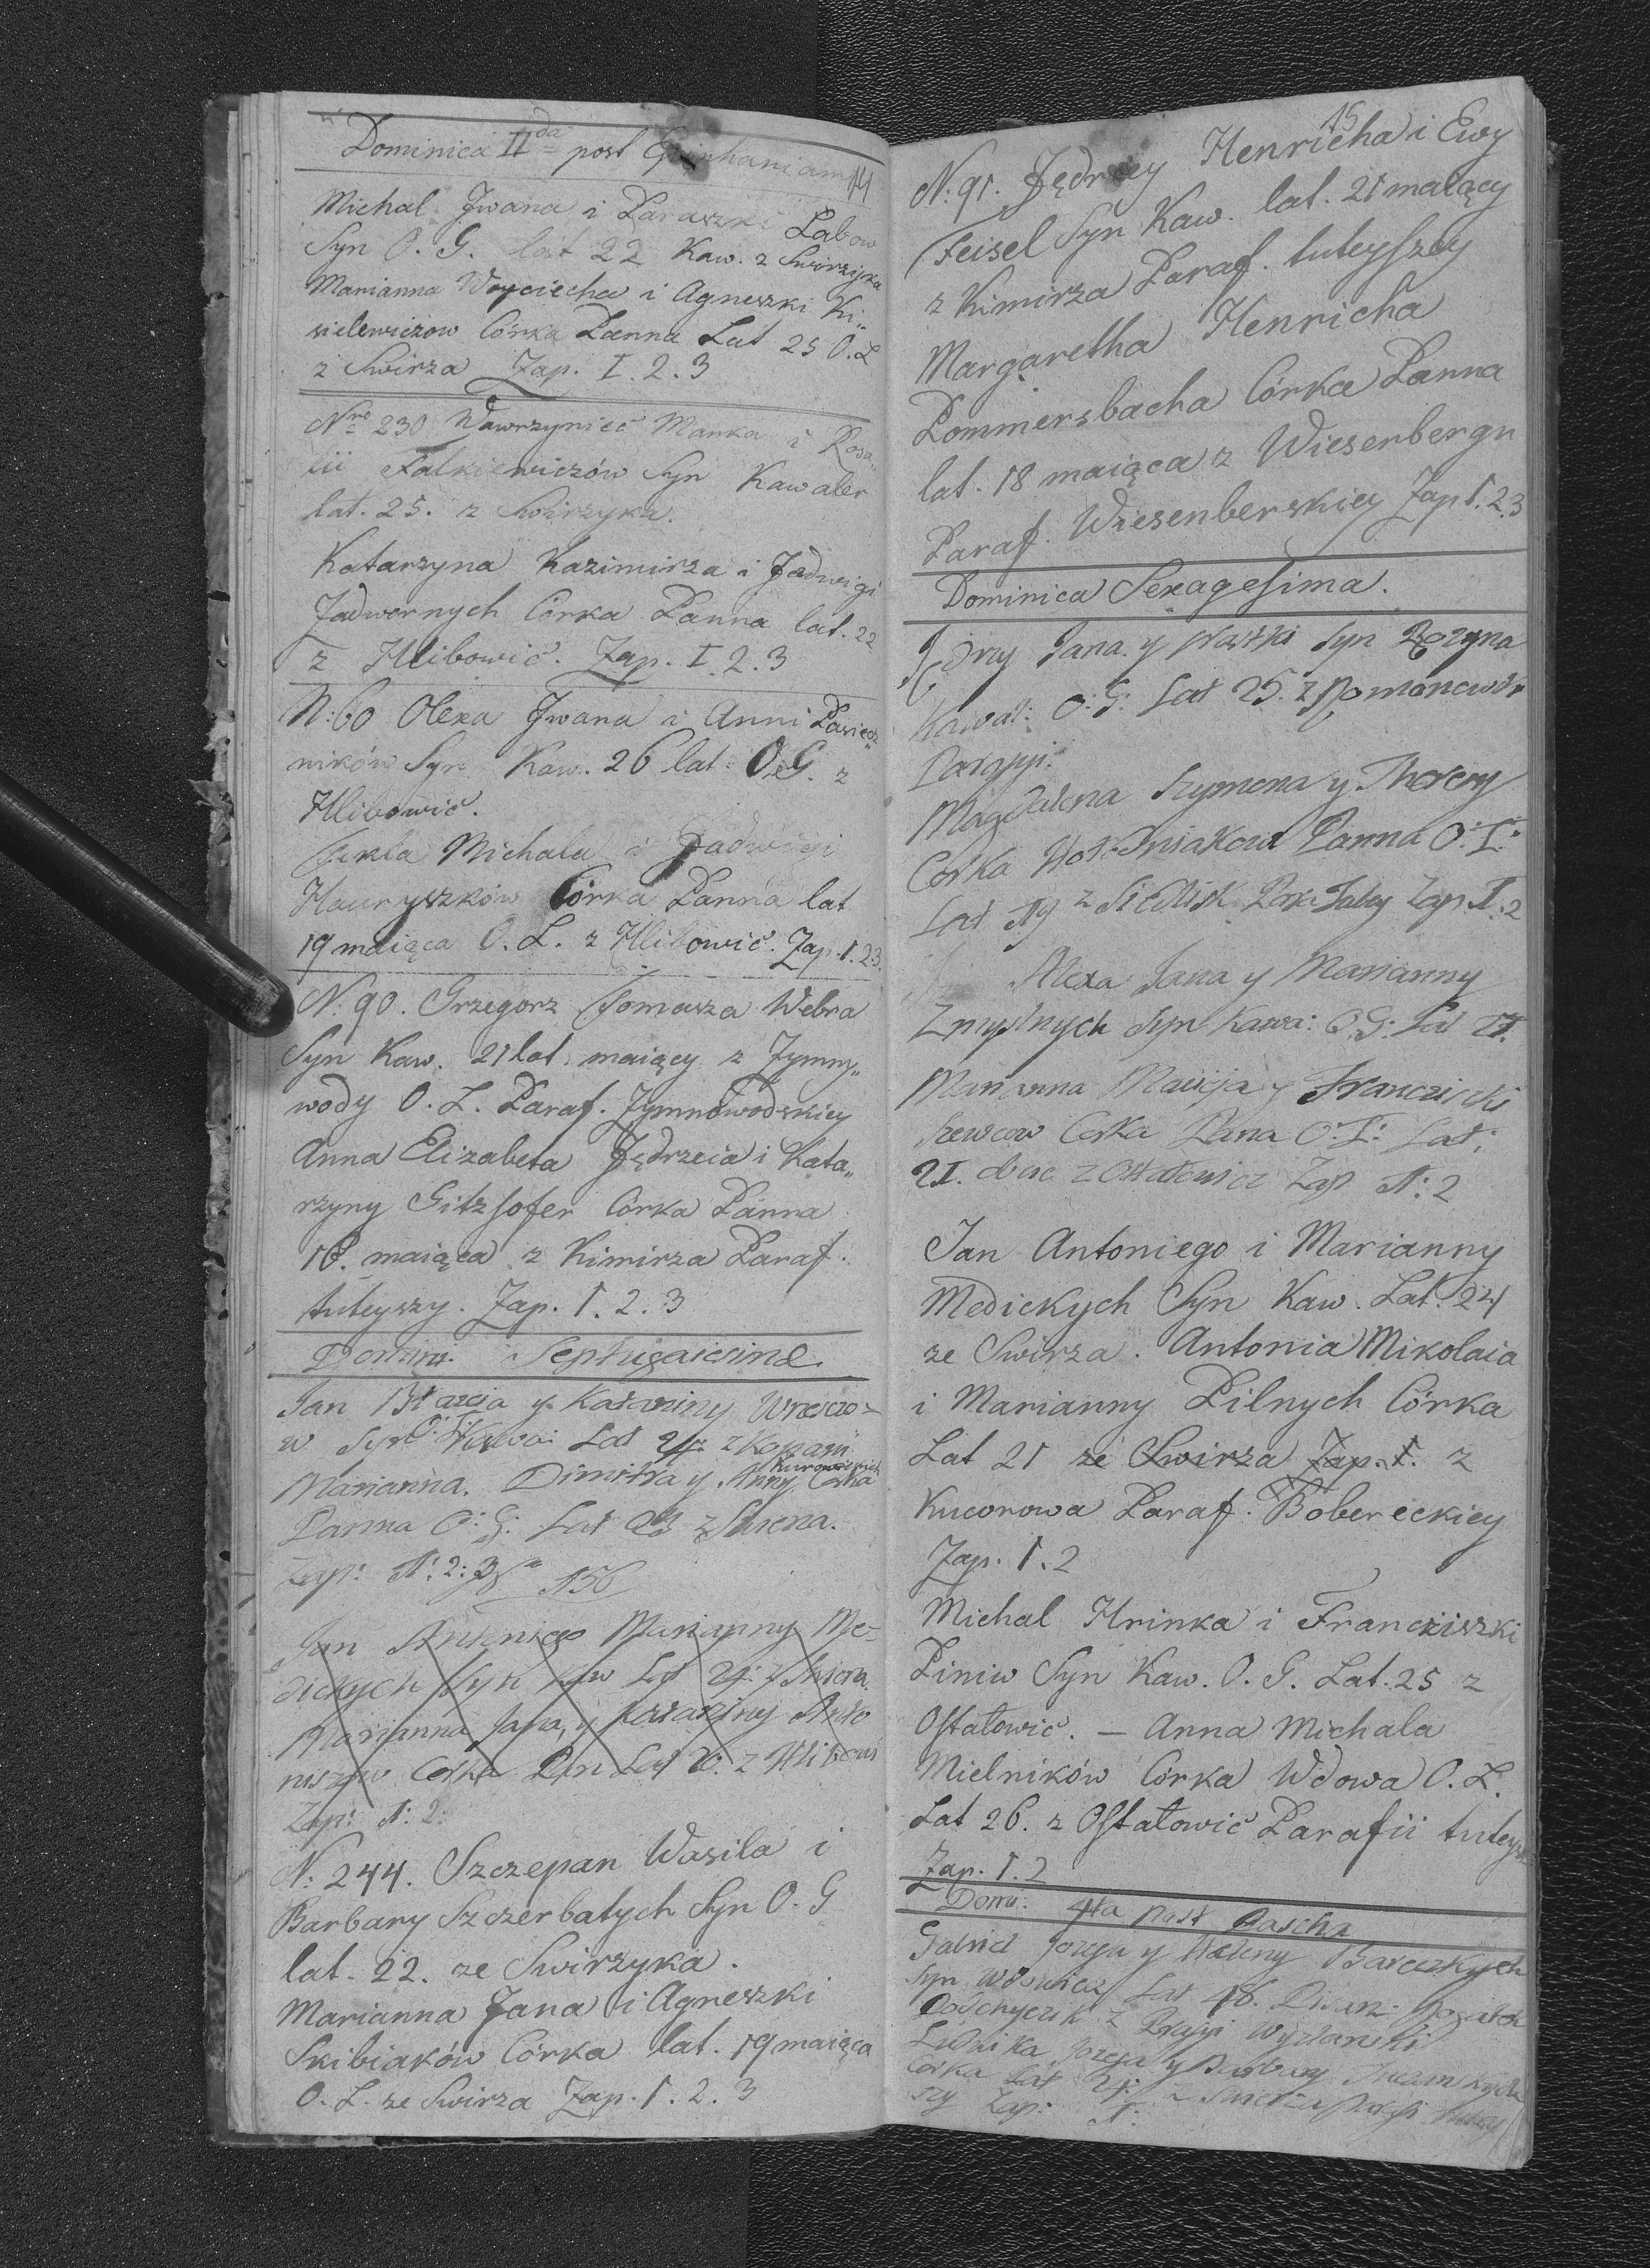 Dominica IIda post Epiphaniam 14
Michal Jwana i Paraszki Labow
Syn O. G. lat 22 Kaw. z Swirzyka
Marianna Woyciecha i Agneszki Ki„
sielewiczow Córka Panna Lat 25 O. L
z Swirza Zap. I. 2. 3
Nro 230 Wawrzyniec Marka i Rosa„
lii Falkiewiczów Syn Kawaler
lat. 25. z Swirzyka.
Katarzyna Kazimirza i Jadwigi
Zadwornych Corka Panna lat. 22
z Hlibowic. Zap. I. 2. 3
N: 60 Olexa Jwana i Anni Pasiecz„
ników Syn Kaw. 26 lat O. G. z
Hlibowic.
Tekla Michala i Jadwigi
Hauryszków Córka Panna lat
19 maiąca O. L. z Hlibowic. Zap. 1. 2. 3.
N. 90. Grzegorz Tomasza Webra
Syn Kaw. 21 lat maiący z Zymny„
wody O. L. Paraf. Zymnowodskiey
Anna Elizabeta Jędrzeia i Kata„
rzyny Gitzhofer Córka Panna
18. maiąca z Kimirza Paraf.
tuteyszy. Zap. 1. 2. 3
Domini. Septugaiesime
Jan Błazeja y Katarziny
w Syn Kawa: Lat 24: z Kopani
Marianna. Dimitra y Anny Corka
Panna O: G: Lat z Swirza.
Zap: 1: 2: 3 156
Jan Antoniego Marianny Me-
dickych Syn Kaw Lat 24: z Swirza.
Marianna Jana, y Katarziny Anto
niszow Corka Pan Lat z Hlibowi
Zap: 1: 2:
N: 244. Szczepan Wasila i
Barbary Szczerbatych Syn O. G
lat. 22. ze Swirzyka.
Marianna Jana i Agneszki
Skibiaków Córka lat. 19 maiąca
O. L. ze Swirza Zap. 1. 2. 3
15
N: 91. Jędrzey Henricha i Ewy
Feisel Syn Kaw. lat. 21 maiący
z Kimirza Paraf. tuteyszey
Margaretha Henricha
Pommersbacha Córka Panna
lat. 18 maiąca z Wiesenbergu
Paraf. Wiesenberskiey Zap 1. 2. 3
Dominica Sexagesima.
Jędrzy Jana y Nastki Syn
Kawal: O: G: Lat 25. z Romanowski
Parafyi.
Magdalena Szymona y Theresy
Corka Panna O: L:
Lat 19 z Siedlisk Para Tutey Zap. I. 2
Alexa Jana y Marianny
Zmyslnych Syn Kawa: O. G: Lat
Marianna Macieja y Franciszki
Szewcow Corka Pana O: L: Lat:
21. oboie z Ostałowicz Zap 1: 2
Jan Antoniego i Marianny
Medickych Syn Kaw. Lat. 24
ze Swirza. Antonia Mikolaia
i Marianny Pilnych Córka
Lat 21 ze Swirza Zap. 1. z
Kucorowa Paraf. Bobereckiey
Zap. 1. 2
Michal Hrinka i Franciszki
Piniw Syn Kaw. O. G. Lat. 25 z
Ostałowic. — Anna Michala
Mielników Córka Wdowa O. L.
Lat 26. z Ostałowic Parafii tuteysz
Zap. 1. 2
Domi: 4ta Post Pascha
Gabriel Jozefa y Heleny Bareczkych
Syn Wdowiec Lat 46.
z Prafyi
Ludwika Jozefa y Barbary
Corka Lat 24: z Swirza Parafi tutey
szy Zap: 1: